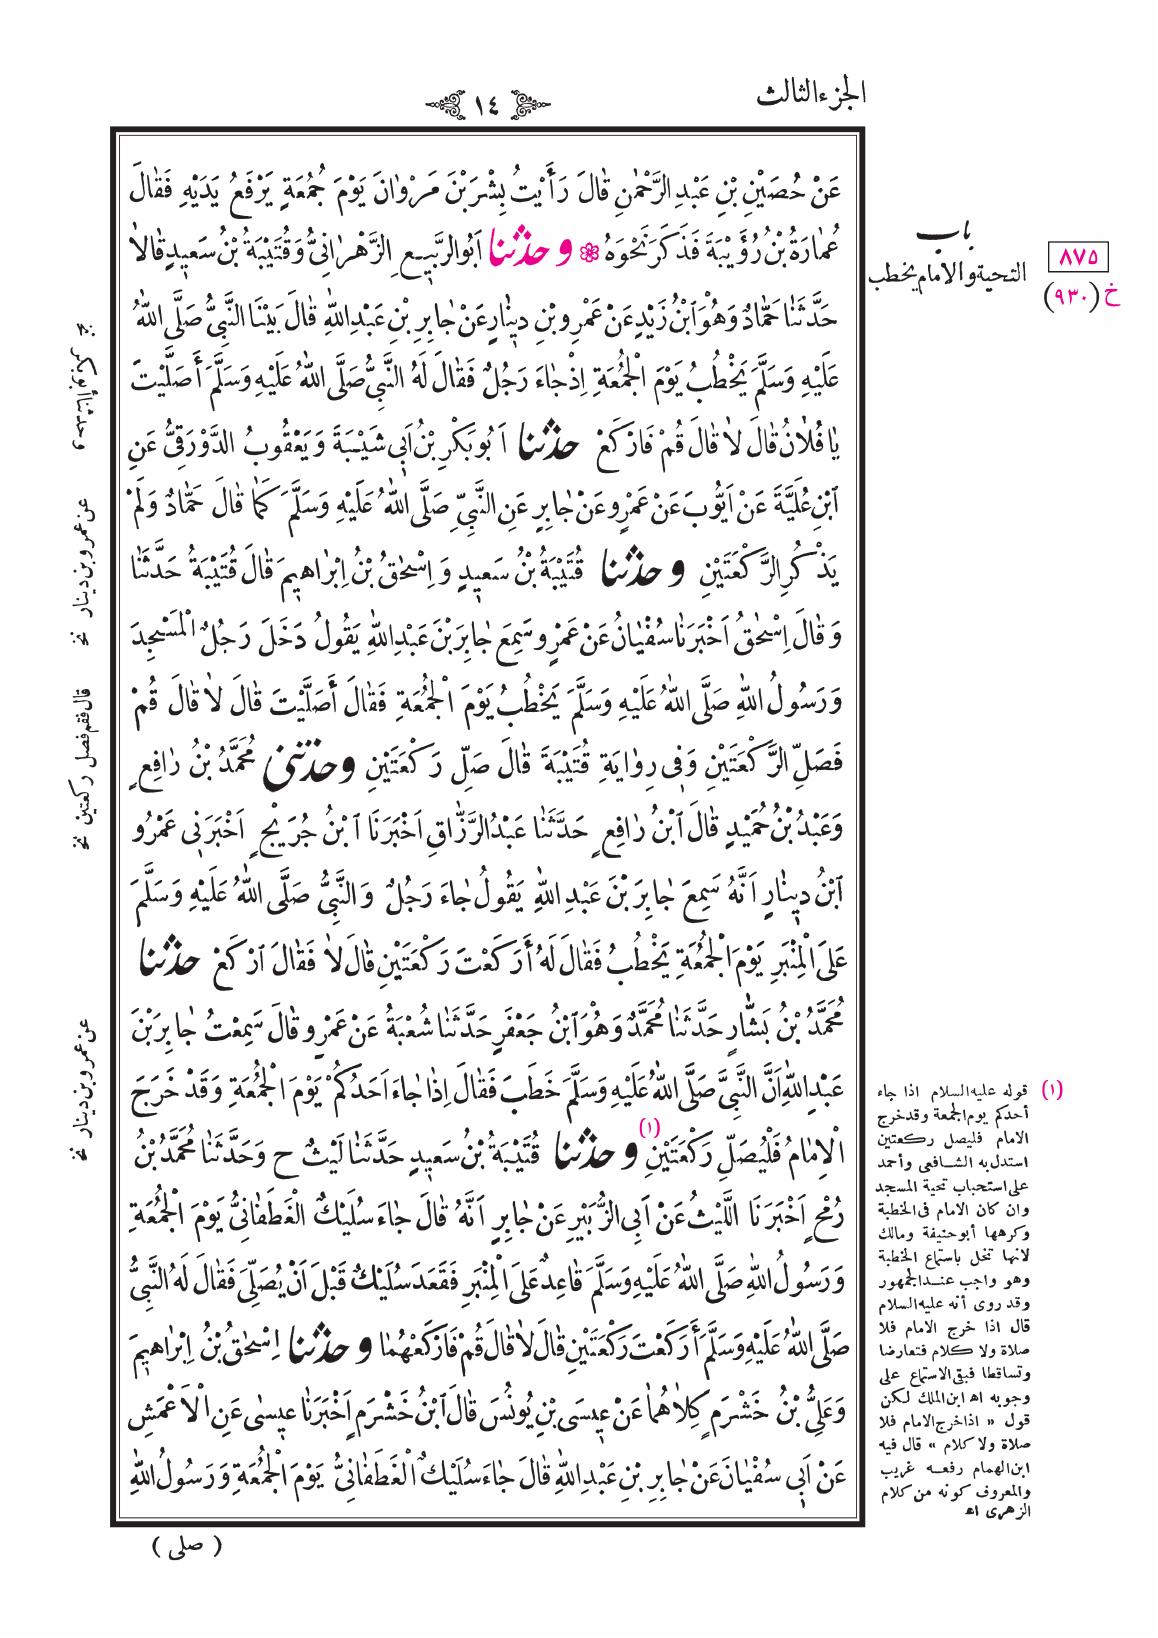 الجزء الثالث
١٤
عَنْ حُصَيْنِ بْنِ عَبْدِ الرَّحْمٰنِ قَالَ رَأَيْتُ بِشْرَ بْنَ مَرْوَانَ يَوْمَ جُمُعَةٍ يَرْفَعُ يَدَيْهِ فَقَالَ
عُمَارَةُ بْنُ رُؤَيْبَةَ فَذَكَرَ نَحْوَهُ ❀ وحدثنا اَبُو الرَّبِيعِ الزَّهْرَانِىُّ وَقُتَيْبَةُ بْنُ سَعِيدٍ قَالَا
حَدَّثَنَا حَمَّادٌ وَهُوَ ابْنُ زَيْدٍ عَنْ عَمْرِو بْنِ دِينَارٍ عَنْ جَابِرِ بْنِ عَبْدِ اللهِ قَالَ بَيْنَا النَّبِىُّ صَلَّى اللهُ
عَلَيْهِ وَسَلَّمَ يَخْطُبُ يَوْمَ الْجُمُعَةِ اِذْ جَاءَ رَجُلٌ فَقَالَ لَهُ النَّبِىُّ صَلَّى اللهُ عَلَيْهِ وَسَلَّمَ أَصَلَّيْتَ
يَا فُلَانُ قَالَ لَا قَالَ قُمْ فَارْكَعْ حدثنا اَبُو بَكْرِ بْنُ اَبِى شَيْبَةَ وَيَعْقُوبُ الدَّوْرَقِىُّ عَنِ
ابْنِ عُلَيَّةَ عَنْ اَيُّوبَ عَنْ عَمْرٍو عَنْ جَابِرٍ عَنِ النَّبِىِّ صَلَّى اللهُ عَلَيْهِ وَسَلَّمَ كَمَا قَالَ حَمَّادٌ وَلَمْ
يَذْكُرِ الرَّكْعَتَيْنِ وحدثنا قُتَيْبَةُ بْنُ سَعِيدٍ وَاِسْحٰقُ بْنُ اِبْرَاهِيمَ قَالَ قُتَيْبَةُ حَدَّثَنَا
وَقَالَ اِسْحٰقُ اَخْبَرَنَا سُفْيَانُ عَنْ عَمْرٍو سَمِعَ جَابِرَ بْنَ عَبْدِ اللهِ يَقُولُ دَخَلَ رَجُلٌ الْمَسْجِدَ
وَرَسُولُ اللهِ صَلَّى اللهُ عَلَيْهِ وَسَلَّمَ يَخْطُبُ يَوْمَ الْجُمُعَةِ فَقَالَ أَصَلَّيْتَ قَالَ لَا قَالَ قُمْ
فَصَلِّ الرَّكْعَتَيْنِ وَفِى رِوَايَةِ قُتَيْبَةَ قَالَ صَلِّ رَكْعَتَيْنِ وحدثنى مُحَمَّدُ بْنُ رَافِعٍ
وَعَبْدُ بْنُ حُمَيْدٍ قَالَ ابْنُ رَافِعٍ حَدَّثَنَا عَبْدُ الرَّزَّاقِ اَخْبَرَنَا ابْنُ جُرَيْجٍ اَخْبَرَنِى عَمْرُو
ابْنُ دِينَارٍ اَنَّهُ سَمِعَ جَابِرَ بْنَ عَبْدِ اللهِ يَقُولُ جَاءَ رَجُلٌ وَالنَّبِىُّ صَلَّى اللهُ عَلَيْهِ وَسَلَّمَ
عَلَى الْمِنْبَرِ يَوْمَ الْجُمُعَةِ يَخْطُبُ فَقَالَ لَهُ أَرَكَعْتَ رَكْعَتَيْنِ قَالَ لَا فَقَالَ ارْكَعْ حدثنا
مُحَمَّدُ بْنُ بَشَّارٍ حَدَّثَنَا مُحَمَّدٌ وَهُوَ ابْنُ جَعْفَرٍ حَدَّثَنَا شُعْبَةُ عَنْ عَمْرٍو قَالَ سَمِعْتُ جَابِرَ بْنَ
عَبْدِ اللهِ اَنَّ النَّبِىَّ صَلَّى اللهُ عَلَيْهِ وَسَلَّمَ خَطَبَ فَقَالَ اِذَا جَاءَ اَحَدُكُمْ يَوْمَ الْجُمُعَةِ وَقَدْ خَرَجَ
الْاِمَامُ فَلْيُصَلِّ رَكْعَتَيْنِ (١) وحدثنا قُتَيْبَةُ بْنُ سَعِيدٍ حَدَّثَنَا لَيْثٌ ح وَحَدَّثَنَا مُحَمَّدُ بْنُ
رُمْحٍ اَخْبَرَنَا اللَّيْثُ عَنْ اَبِى الزُّبَيْرِ عَنْ جَابِرٍ اَنَّهُ قَالَ جَاءَ سُلَيْكٌ الْغَطَفَانِىُّ يَوْمَ الْجُمُعَةِ
وَرَسُولُ اللهِ صَلَّى اللهُ عَلَيْهِ وَسَلَّمَ قَاعِدٌ عَلَى الْمِنْبَرِ فَقَعَدَ سُلَيْكٌ قَبْلَ اَنْ يُصَلِّىَ فَقَالَ لَهُ النَّبِىُّ
صَلَّى اللهُ عَلَيْهِ وَسَلَّمَ أَرَكَعْتَ رَكْعَتَيْنِ قَالَ لَا قَالَ قُمْ فَارْكَعْهُمَا وحدثنا اِسْحٰقُ بْنُ اِبْرَاهِيمَ
وَعَلِىُّ بْنُ خَشْرَمٍ كِلَاهُمَا عَنْ عِيسَى بْنِ يُونُسَ قَالَ ابْنُ خَشْرَمٍ اَخْبَرَنَا عِيسٰى عَنِ الْاَعْمَشِ
عَنْ اَبِى سُفْيَانَ عَنْ جَابِرِ بْنِ عَبْدِ اللهِ قَالَ جَاءَ سُلَيْكٌ الْغَطَفَانِىُّ يَوْمَ الْجُمُعَةِ وَرَسُولُ اللهِ
( صلى )
باب
التحية والامام يخطب
٨٧٥
خ (٩٣٠)
(١) قوله عليه السلام اذا جاء
أحدكم يوم الجمعة وقد خرج
الامام فليصل ركعتين
استدل به الشافعى وأحمد
على استحباب تحية المسجد
وان كان الامام فى الخطبة
وكرهها أبو حنيفة ومالك
لانها تخل باستماع الخطبة
وهو واجب عند الجمهور
وقد روى أنه عليه السلام
قال اذا خرج الامام فلا
صلاة ولا كلام فتعارضا
وتساقطا فبقى الاستماع على
وجوبه اه ابن الملك لكن
قول « اذا خرج الامام فلا
صلاة ولا كلام » قال فيه
ابن الهمام رفعه غريب
والمعروف كونه من كلام
الزهرى اه
وحدثنا أبو بكر نخ
عن عمرو بن دينار نخ
قال فقم فصل ركعتين نخ
عن عمرو بن دينار نخ